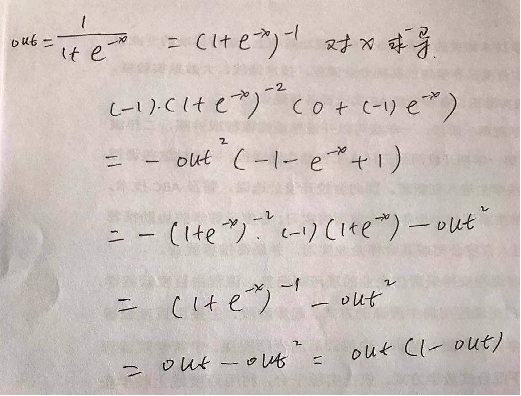 out = 1/(1+e^-x) = (1+e^-x)^-1 对x求导.
(-1).(1+e^-x)^-2 (0+(-1)e^-x)
= -out^2 (-1-e^-x+1)
= -(1+e^-x)^-2. (-1)(1+e^-x) - out^2
= (1+e^-x)^-1 - out^2
= out - out^2 = out (1-out)